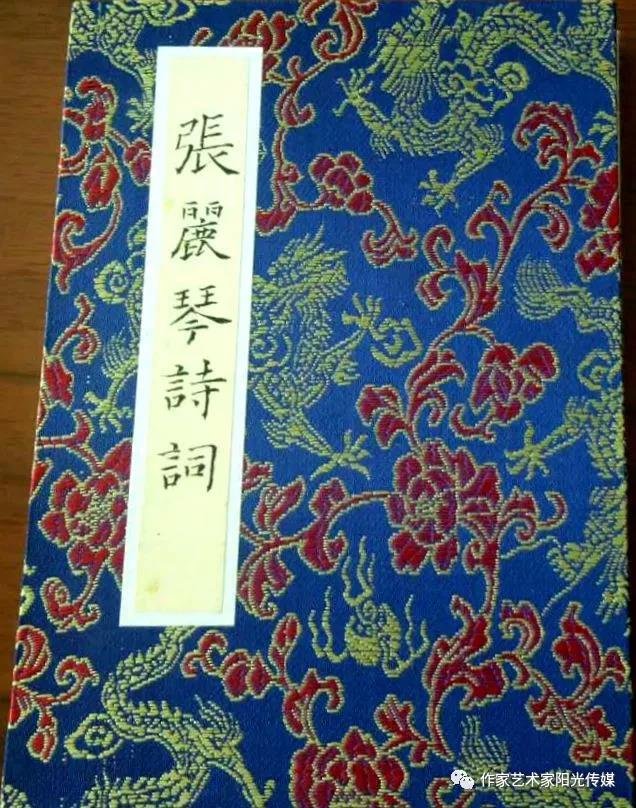 張麗琴詩詞
作家艺术家阳光传媒